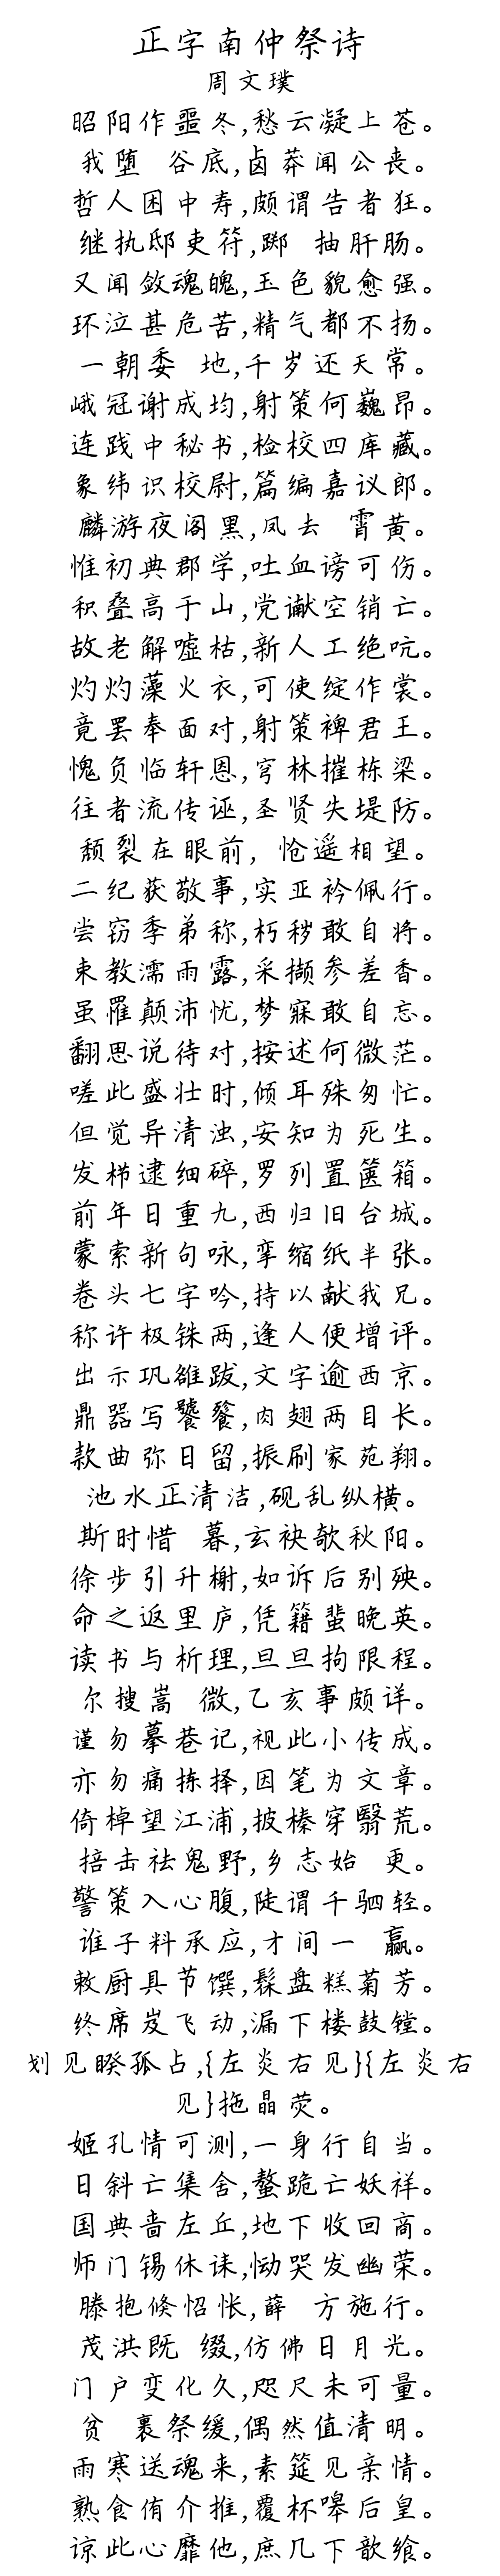 正字南仲祭诗
周文璞
昭阳作噩冬,愁云凝上苍。
我堕 谷底,卤莽闻公丧。
哲人困中寿,颇谓告者狂。
继执邸吏符,踯 抽肝肠。
又闻敛魂魄,玉色貌愈强。
环泣甚危苦,精气都不扬。
一朝委 地,千岁还天常。
峨冠谢成均,射策何巍昂。
连践中秘书,检校四库藏。
象纬识校尉,篇编嘉议郎。
麟游夜阁黑,凤去 霄黄。
惟初典郡学,吐血谤可伤。
积叠高于山,党谳空销亡。
故老解嘘枯,新人工绝吭。
灼灼藻火衣,可使绽作裳。
竟罢奉面对,射策裨君王。
愧负临轩恩,穹林摧栋梁。
往者流传诬,圣贤失堤防。
颓裂在眼前, 怆遥相望。
二纪获敬事,实亚衿佩行。
尝窃季弟称,朽秽敢自将。
束教濡雨露,采撷参差香。
虽罹颠沛忧,梦寐敢自忘。
翻思说待对,按述何微茫。
嗟此盛壮时,倾耳殊匆忙。
但觉异清浊,安知为死生。
发栉逮细碎,罗列置箧箱。
前年日重九,西归旧台城。
蒙索新句咏,挛缩纸半张。
卷头七字吟,持以献我兄。
称许极铢两,逢人便增评。
出示巩雒跋,文字逾西京。
鼎器写饕餮,肉翅两目长。
款曲弥日留,振刷家苑翔。
池水正清洁,砚乱纵横。
斯时惜 暮,玄袂欹秋阳。
徐步引升榭,如诉后别殃。
命之返里庐,凭籍蜚晚英。
读书与析理,旦旦拘限程。
尔搜嵩 微,乙亥事颇详。
谨勿摹巷记,视此小传成。
亦勿痛拣择,因笔为文章。
倚棹望江浦,披榛穿翳荒。
掊击祛鬼野,乡志始 更。
警策入心腹,陡谓千驷轻。
谁子料承应,才间一 赢。
敕厨具节馔,髹盘糕菊芳。
终席岌飞动,漏下楼鼓镗。
划见睽孤占,{左炎右见}{左炎右
见}拖晶荧。
姬孔情可测,一身行自当。
日斜亡集舍,螯跪亡妖祥。
国典啬左丘,地下收回商。
师门锡休诔,恸哭发幽荣。
滕抱倏怊怅,薛 方施行。
茂洪既 缀,仿佛日月光。
门户变化久,咫尺未可量。
贫 裹祭缓,偶然值清明。
雨寒送魂来,素筵见亲情。
熟食侑介推,覆杯嗥后皇。
谅此心靡他,庶几下歆飨。